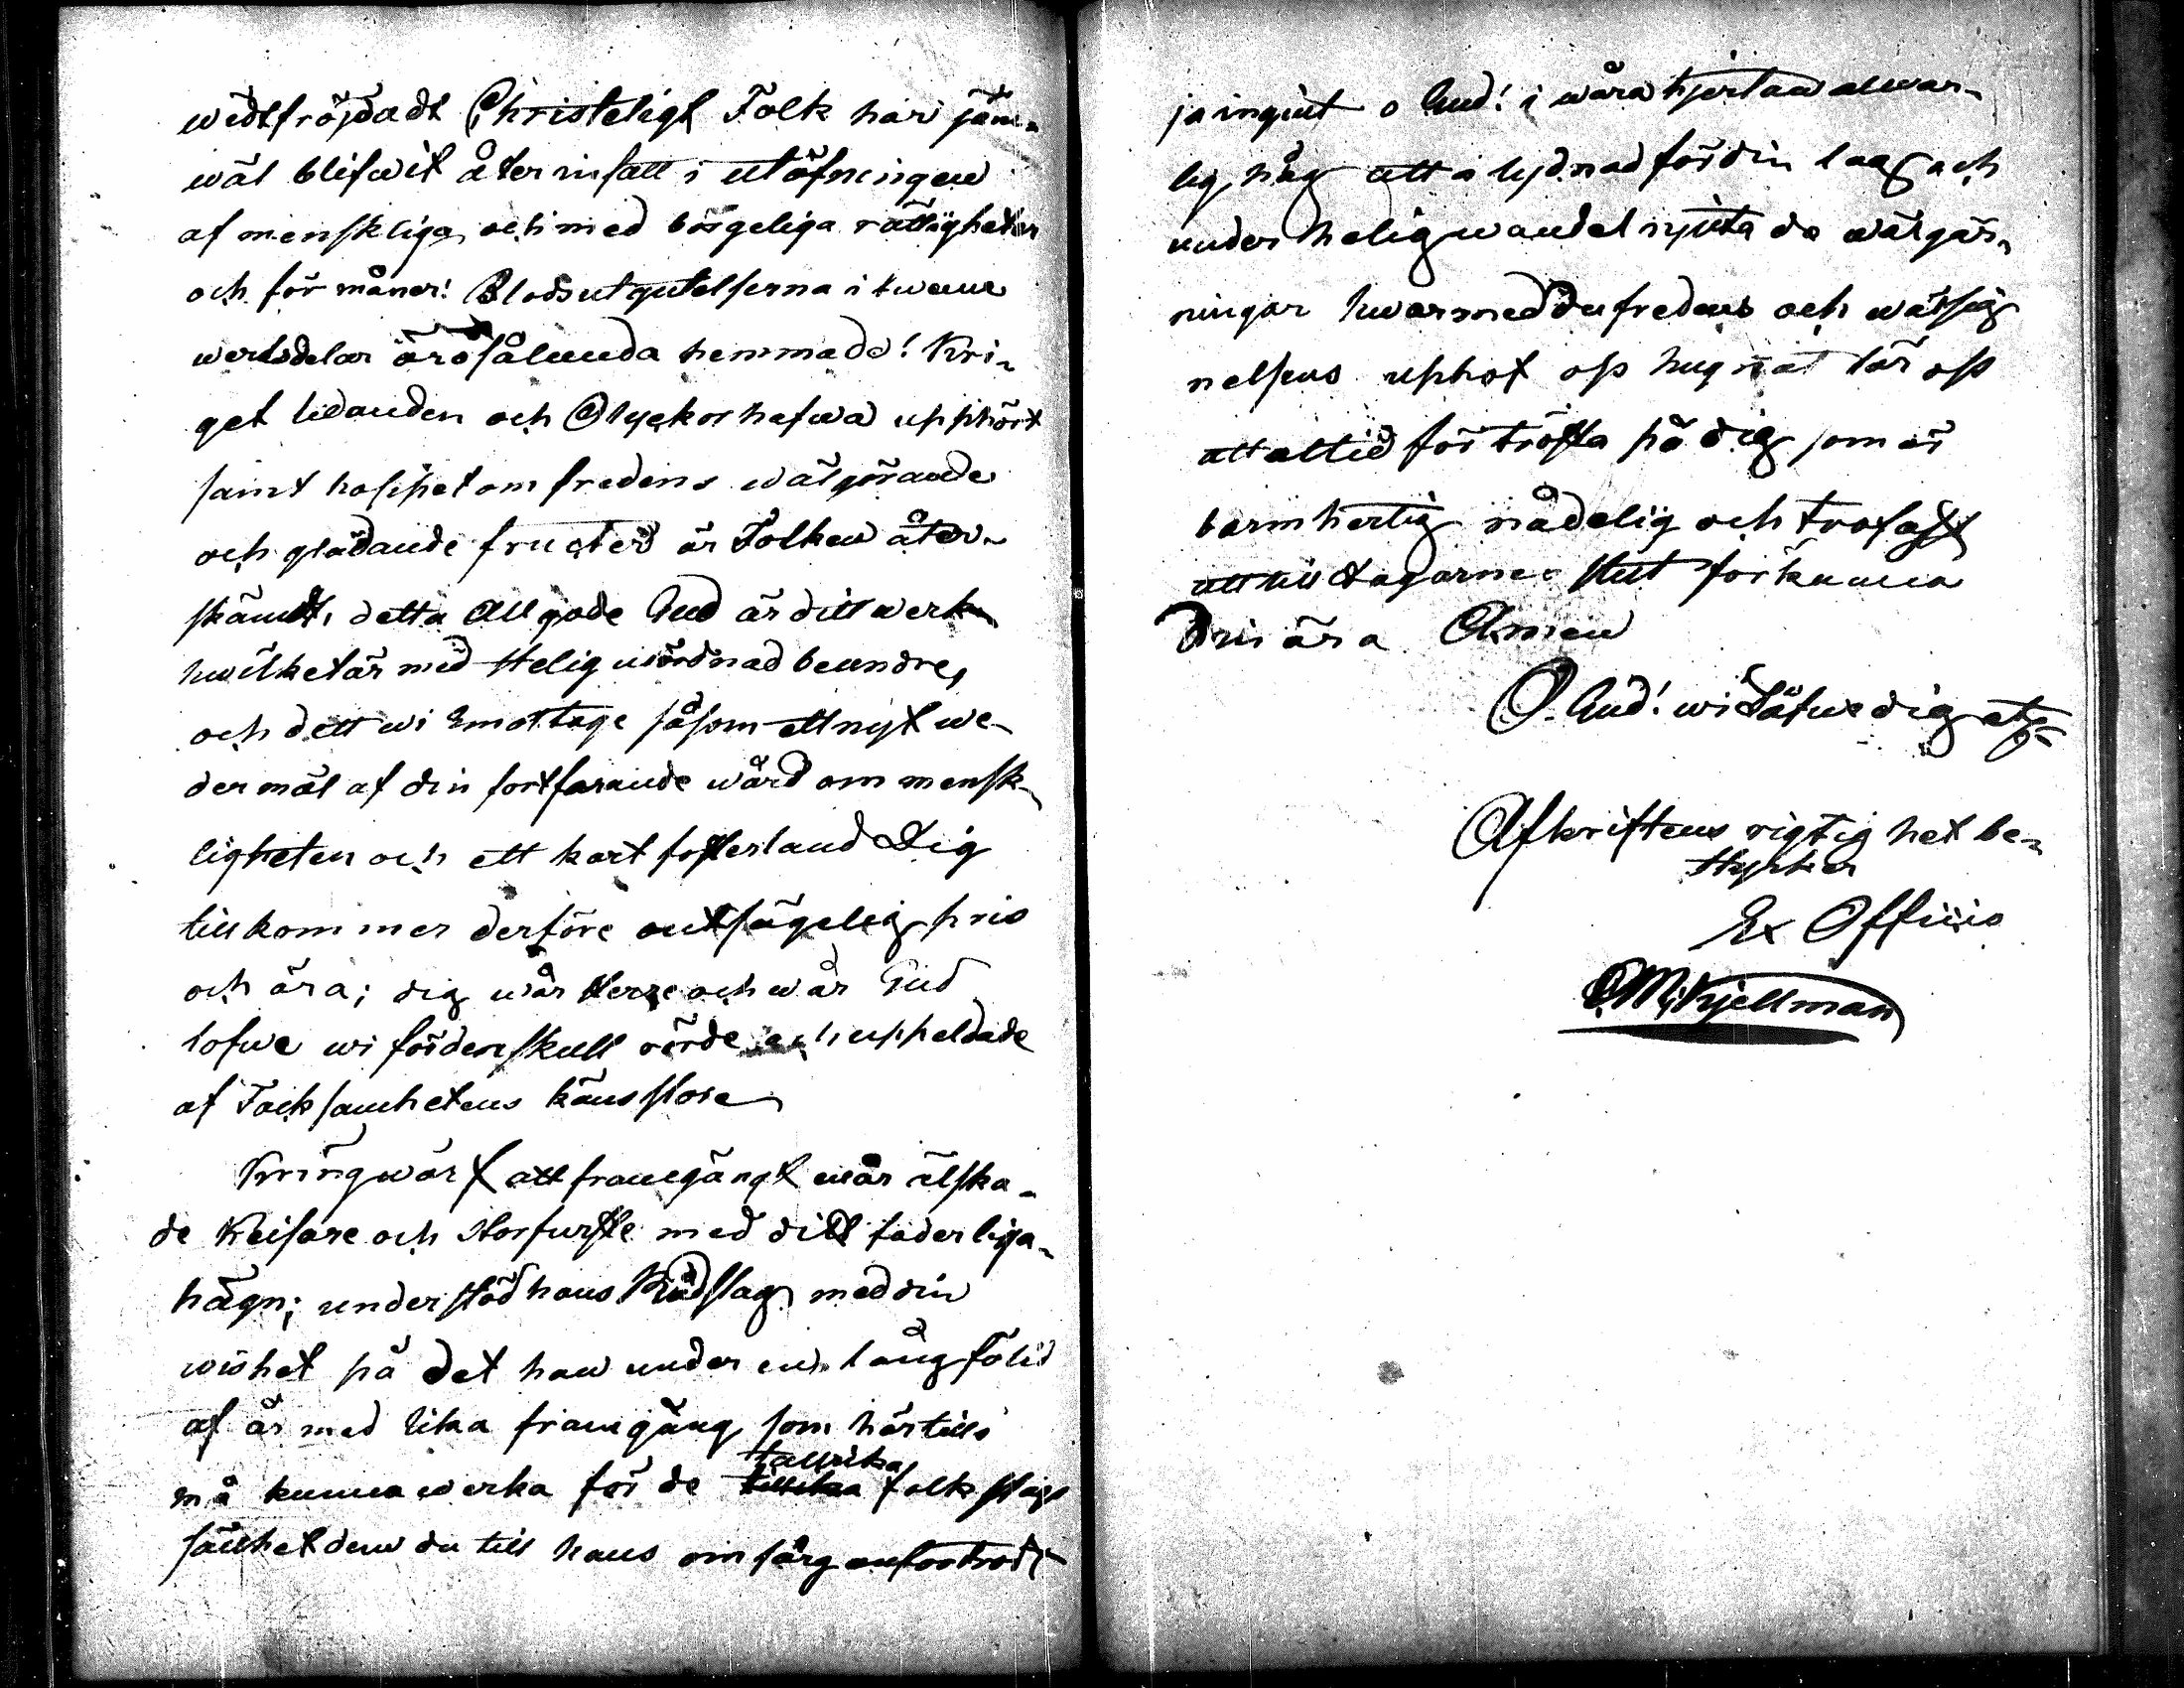 widtfröjdadt Christeligt Folk har jäm-
wäl blifwit återinsatt i utöfningen
af menskliga och med borgeliga rättigheter
och förmåner! Blodsutgutelserna i twenne
werlsdelar äro sålunda hemmade! Kri-
get lidanden och Olyckor hafwa upphört
samt hoppet om fredens wälgörande
och glädande frugter är Folken åter-
skänkt, detta Allgode Gud är ditt werk
hwilket är med Helig wördnad beundre,
och dett wi Emottage såsom ett nytt we-
dermäl af din fortfarande wård om mensk-
ligheten och ett kärt fosterland Dig
tillkommer derföre outsägelig pris
och ära; dig wår Herre och wår Gud
lofwe wi fördenskull rörde och uppeldade
af Tacksamhetens känsslore
Kringwärf att framgängt wår älska-
de Keisare och Storfurste med ditt faderliga-
hägn; understöd hans Rådslag med din
wishet på det han under en lång följd
af år med lika framgång som härtills
tallrika
må kunna werka för de tillika folkslags
sällhet dem du till hans omsårg anförtrodt
ja ingiut o Gud! i wåra hjertan alwar-
lig håg att i lydnad för din laag och
under helig wandel njuta de wälgär-
ningar hwarmed du fredens och wälsig
nelsens uphof oss hugnat lär oss
att altid förtrösta på dig som är
barmhertig nådelig och trofast
att till dagarnes slut förkunna
Din ära Amen
O. Gud! wi Låfwe dig etc
Afskriftens rigtighet be-
styrker
Ex Officio
O. M. Kjellman